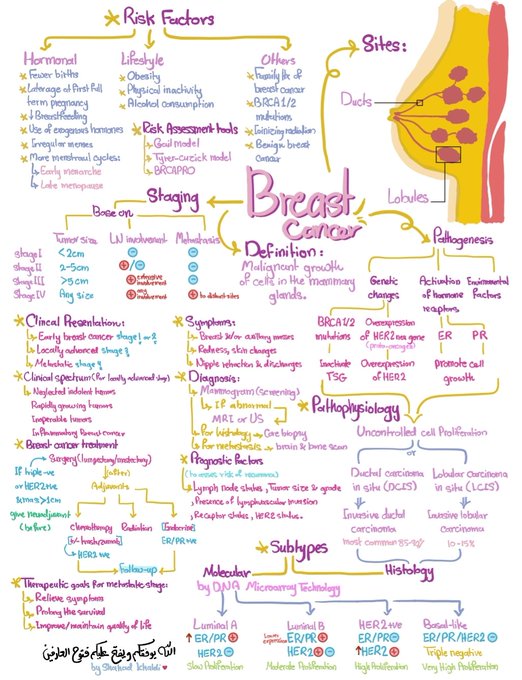 Risk Factors
Hormonal
Fewer births
Later age of first full
term pregnancy
↓ Breastfeeding
Use of exogenous hormones
Irregular menses
More menstrual cycles:
Early menarche
Late menopause
Lifestyle
Obesity
Physical inactivity
Alcohol consumption
Others
Family Hx of
breast cancer
BRCA 1/2
mutations
Ionizing radiation
Benign breast
cancer
Risk Assessment tools
Gail model
Tyrer-cuzick model
BRCAPRO
Sites:
Ducts
Lobules
Breast
Cancer
Staging
Base on
Tumor size
LN involvement
Metastasis
Stage I
<2cm
Stage II
2-5cm
Stage III
>5cm
extensive
involvement
Stage IV
Any size
any
involvement
to distant sites
Definition:
Malignant growth
of cells in the mammary
glands.
Pathogenesis
Genetic
changes
Activation
of hormone
receptors
Environmental
factors
BRCA 1/2
mutations
Overexpression
of HER2 neu gene
(proto-oncogene)
ER
PR
Inactivate
TSG
Overexpression
of HER2
promote cell
growth
Clincal Presentation:
Early breast cancer stage 1 or 2
Locally advanced stage 3
Metastatic stage 4
Clinical spectrum (for locally advanced stage)
Neglected indolent tumors
Rapidly growing tumors
Inoperable tumors
Inflammatory Breast cancer
Symptoms:
Breast &/or axillary masses
Redness, skin changes
Nipple refraction & discharges
Diagnosis:
Mammogram (screening)
If abnormal
MRI or US
For histology → Core biopsy
For metastasis → brain & bone scan
Prognostic Factors
(to asses risk of recurrence)
Lymph node status, Tumor size & grade
Presence of lymphvascular invasion
Receptor status, HER2 status.
Pathophysiology
Uncontrolled cell Proliferation
or
Ductal carcinoma
in situ (DCIS)
Lobular carcinoma
in situ (LCIS)
Invasive ductal
carcinoma
most common 85-90%
Invasive lobular
carcinoma
10-15%
Breast cancer treatment
Surgery (lumpectomy/mastectomy)
If triple -ve
or HER2+ve
& mass >1cm
give neoadjuvant
(before)
(after)
Adjuvants
chemotherapy
[+/- trastuzumab]
HER2 +ve
Radiation
Endocrine
ER/PR +ve
Follow-up
Therapeutic goals for metastatic stage:
Relieve symptom
Prolong the survival
Improve/maintain quality of life
الله يوفقكم ويفتح عليكم فتوح العارفين
by Shahad Khaldi
Subtypes
Molecular
by DNA Microarray Technology
Histology
Luminal A
↑ ER/PR
HER2
Slow Proliferation
Luminal B
Lower
expression
ER/PR
HER2
Moderate Proliferation
HER2 +ve
ER/PR
↑ HER2
High Proliferation
Basal-like
ER/PR/HER2
Triple negative
Very High Proliferation